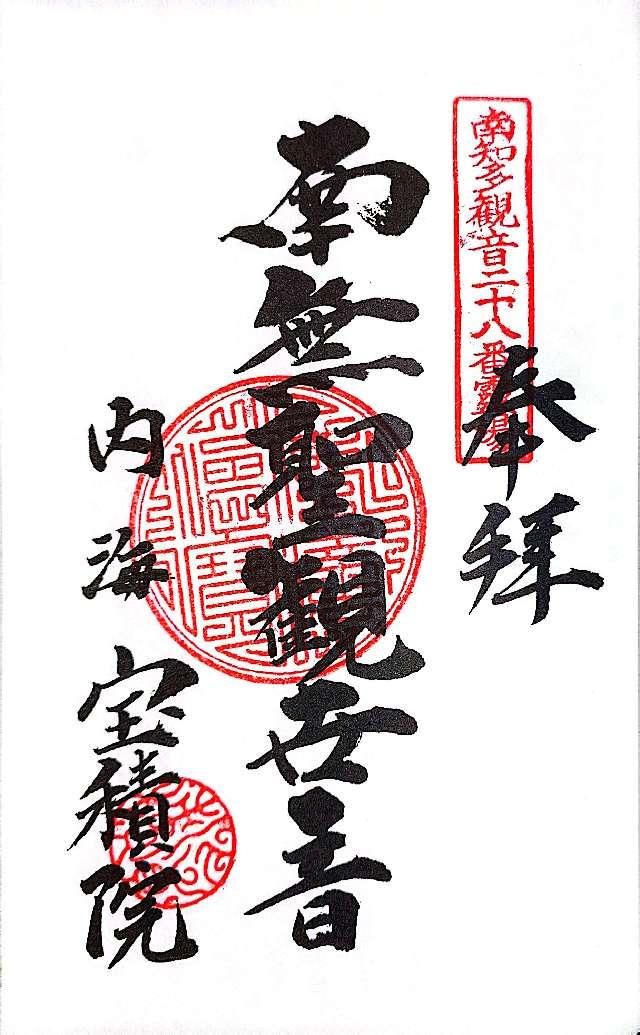 南知多観音二十八番霊場
奉拝
南無聖観世音
内海
宝積院